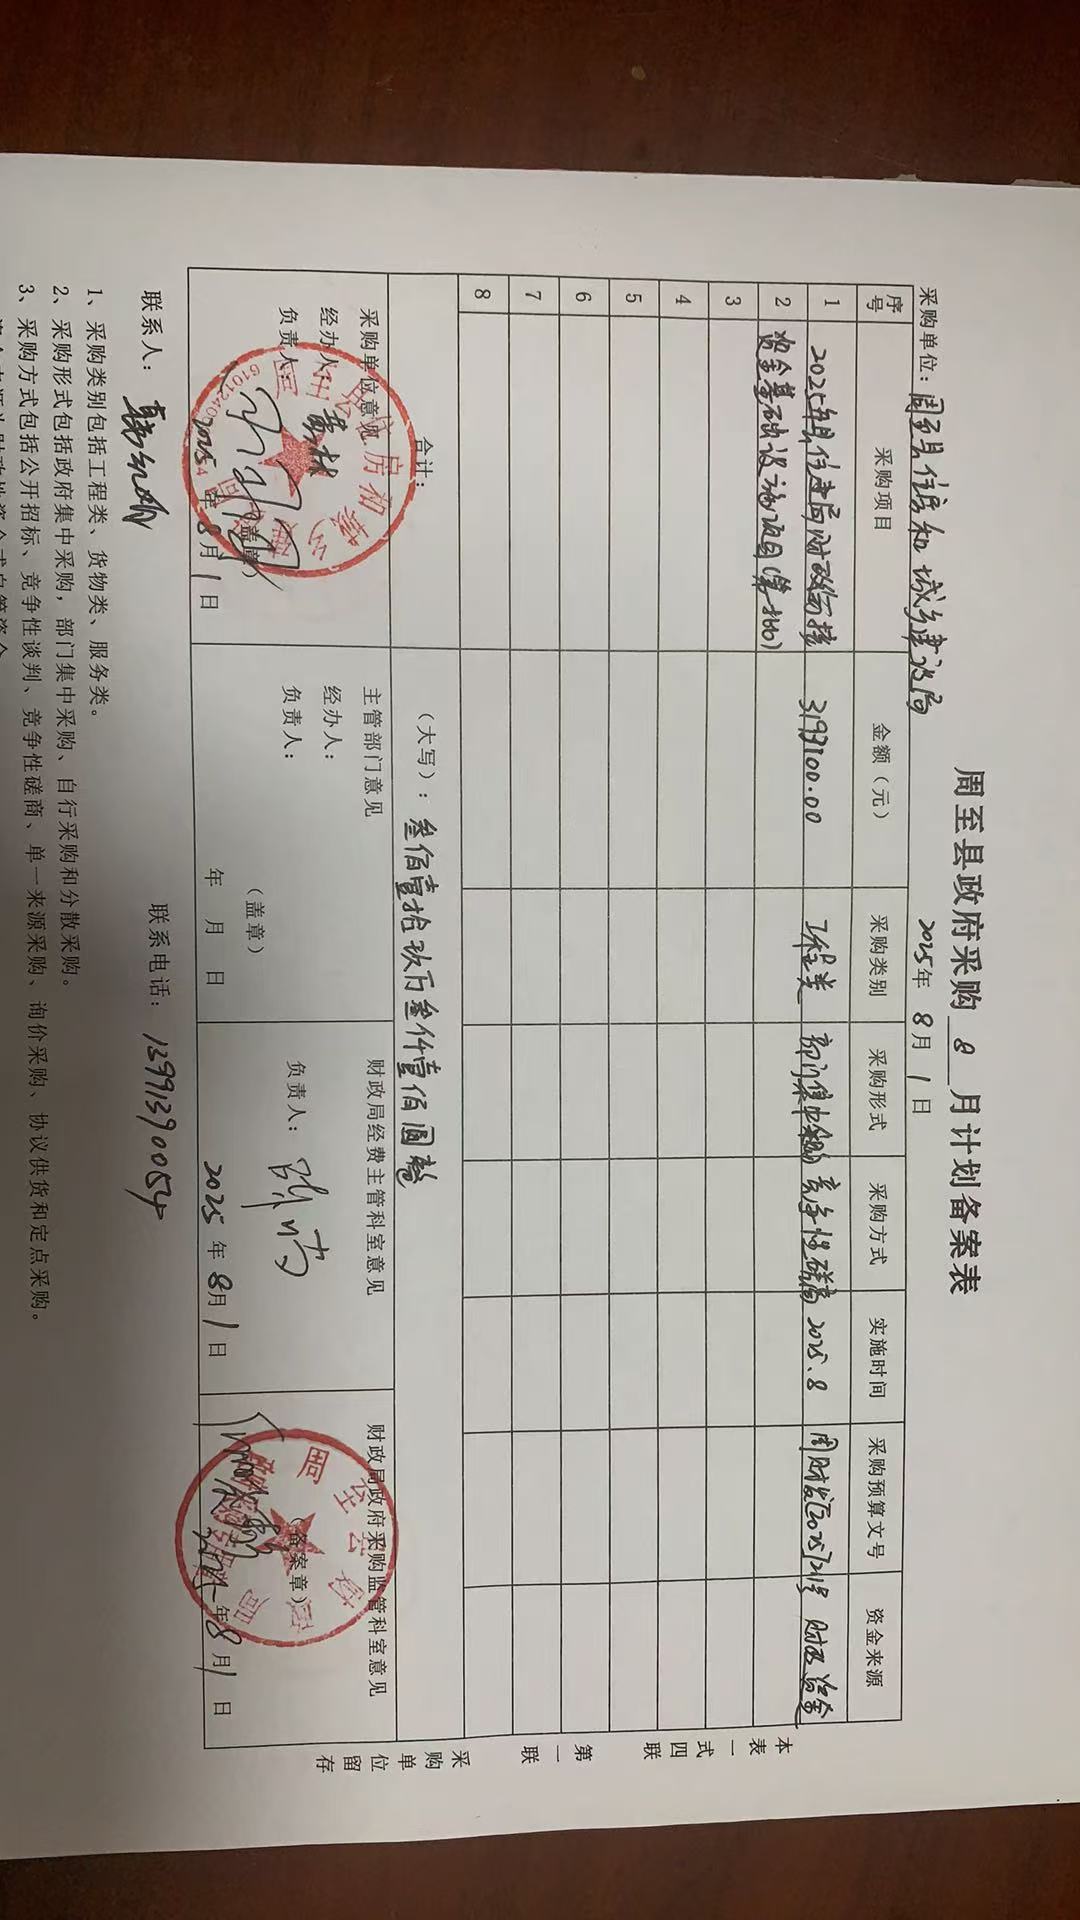 周至县政府采购 8 月计划备案表
采购单位：周至县住房和城乡建设局 2025年 8月 1日
序号 采购项目 金额（元） 采购类别 采购形式 采购方式 实施时间 采购预算文号 资金来源
1 2025年县住建局财政衔接 3193100.00 工程类 部门集中采购 竞争性磋商 2025.8 周财发[2025]21号 财政资金
2 资金基础设施项目(第一批)
3
4
5
6
7
8
合计： （大写）：叁佰壹拾玖万叁仟壹佰圆整
采购单位意见 主管部门意见 财政局经费主管科室意见 财政局政府采购监管科室意见
经办人： 经办人：
负责人： 负责人： 负责人：
（盖章） （盖章） （备案章）
2025年8月1日 年 月 日 2025年8月1日 2025年8月1日
联系人： 联系电话：13991390054
1、采购类别包括工程类、货物类、服务类。
2、采购形式包括政府集中采购，部门集中采购、自行采购和分散采购。
3、采购方式包括公开招标、竞争性谈判、竞争性磋商、单一来源采购、询价采购、协议供货和定点采购。
本表一式四联 第一联 采购单位留存